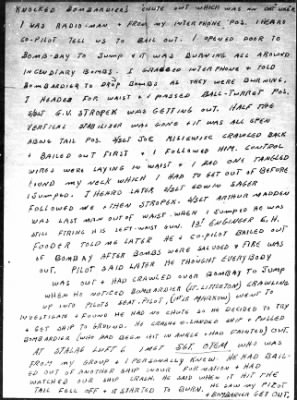 KNOCKED BOMBARDIER'S CHUTE OUT WHICH WAS ON
I WAS RADIO-MAN + FROM MY INTERPHONE POS. I HEARD
CO-PILOT TELL US TO BAIL OUT. I OPENED DOOR TO
BOMB-BAY TO JUMP + IT WAS BURNING ALL AROUND
INCENDIARY BOMBS. I GRABBED INTERPHONE + TOLD
BOMBARDIER TO DROP BOMBS AS THEY WERE BURNING,
I HEADED FOR WAIST + I PASSED BALL-TURRET POS.
G.V. STROPEK WAS GETTING OUT. HALF THE
VERTICAL STABILIZER WAS GONE + IT WAS ALL OPEN
ALONG TAIL POS. S/SGT JOE CRAWLED BACK
+ BAILED OUT FIRST + I FOLLOWED HIM. CONTROL
WIRES WERE LAYING IN WAIST + I HAD ONE TANGLED
ROUND MY NECK WHICH I HAD TO GET OUT OF BEFORE
I JUMPED. I HEARD LATER S/SGT EDWIN SAGER
FOLLOWED ME + THEN STROPEK. S/SGT ARTHUR MADDEN
WAS LAST MAN OUT OF WAIST. WHEN I JUMPED HE WAS
STILL FIRING HIS LEFT-WAIST GUN. 1ST ENGINEER G.H.
FOODER TOLD ME LATER HE + CO-PILOT BAILED OUT
OF BOMBAY AFTER BOMBS WERE SALVOED + FIRE WAS
OUT. PILOT SAID LATER HE THOUGHT EVERYBODY
WAS OUT + HAD CRAWLED OVER BOMBAY TO JUMP
WHEN HE NOTICED BOMBARDIER (LT. LIPPSTON) CRAWLING
UP INTO PILOTS SEAT. PILOT, WENT TO
INVESTIGATE + FOUND HE HAD NO CHUTE SO HE DECIDED TO TRY
+ GET SHIP TO GROUND. HE CRASH-LANDED SHIP + PULLED
BOMBARDIER (WHO HAD BEEN HIT IN KNEE + HAD FAINTED) OUT.
AT STALAG LUFT 6 I MET SGT. OYEM WHO WAS
FROM MY GROUP + I PERSONALLY KNEW. HE HAD BAIL-
ED OUT OF ANOTHER SHIP IN OUR FORMATION + HAD
WATCHED OUR SHIP CRASH. HE SAID WHEN IT HIT THE
TAIL FELL OFF + IT STARTED TO BURN. HE SAW MY PILOT
+ BOMBARDIER GET OUT.